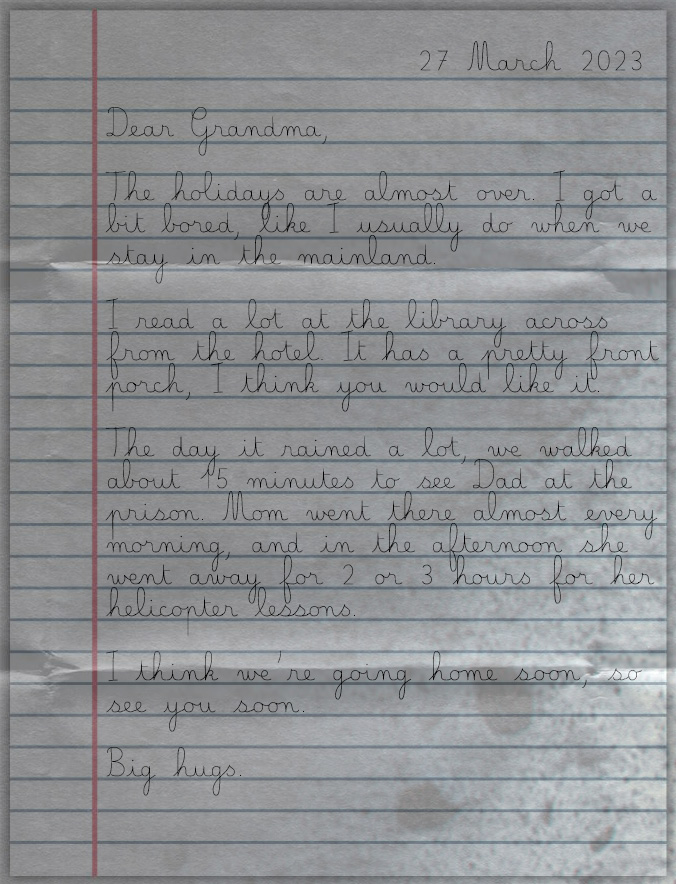 27 March 2023
Dear Grandma,
The holidays are almost over. I got a
bit bored, like I usually do when we
stay in the mainland.
I read a lot at the library across
from the hotel. It has a pretty front
porch, I think you would like it.
The day it rained a lot, we walked
about 15 minutes to see Dad at the
prison. Mom went there almost every
morning, and in the afternoon she
went away for 2 or 3 hours for her
helicopter lessons.
I think we're going home soon, so
see you soon.
Big hugs.